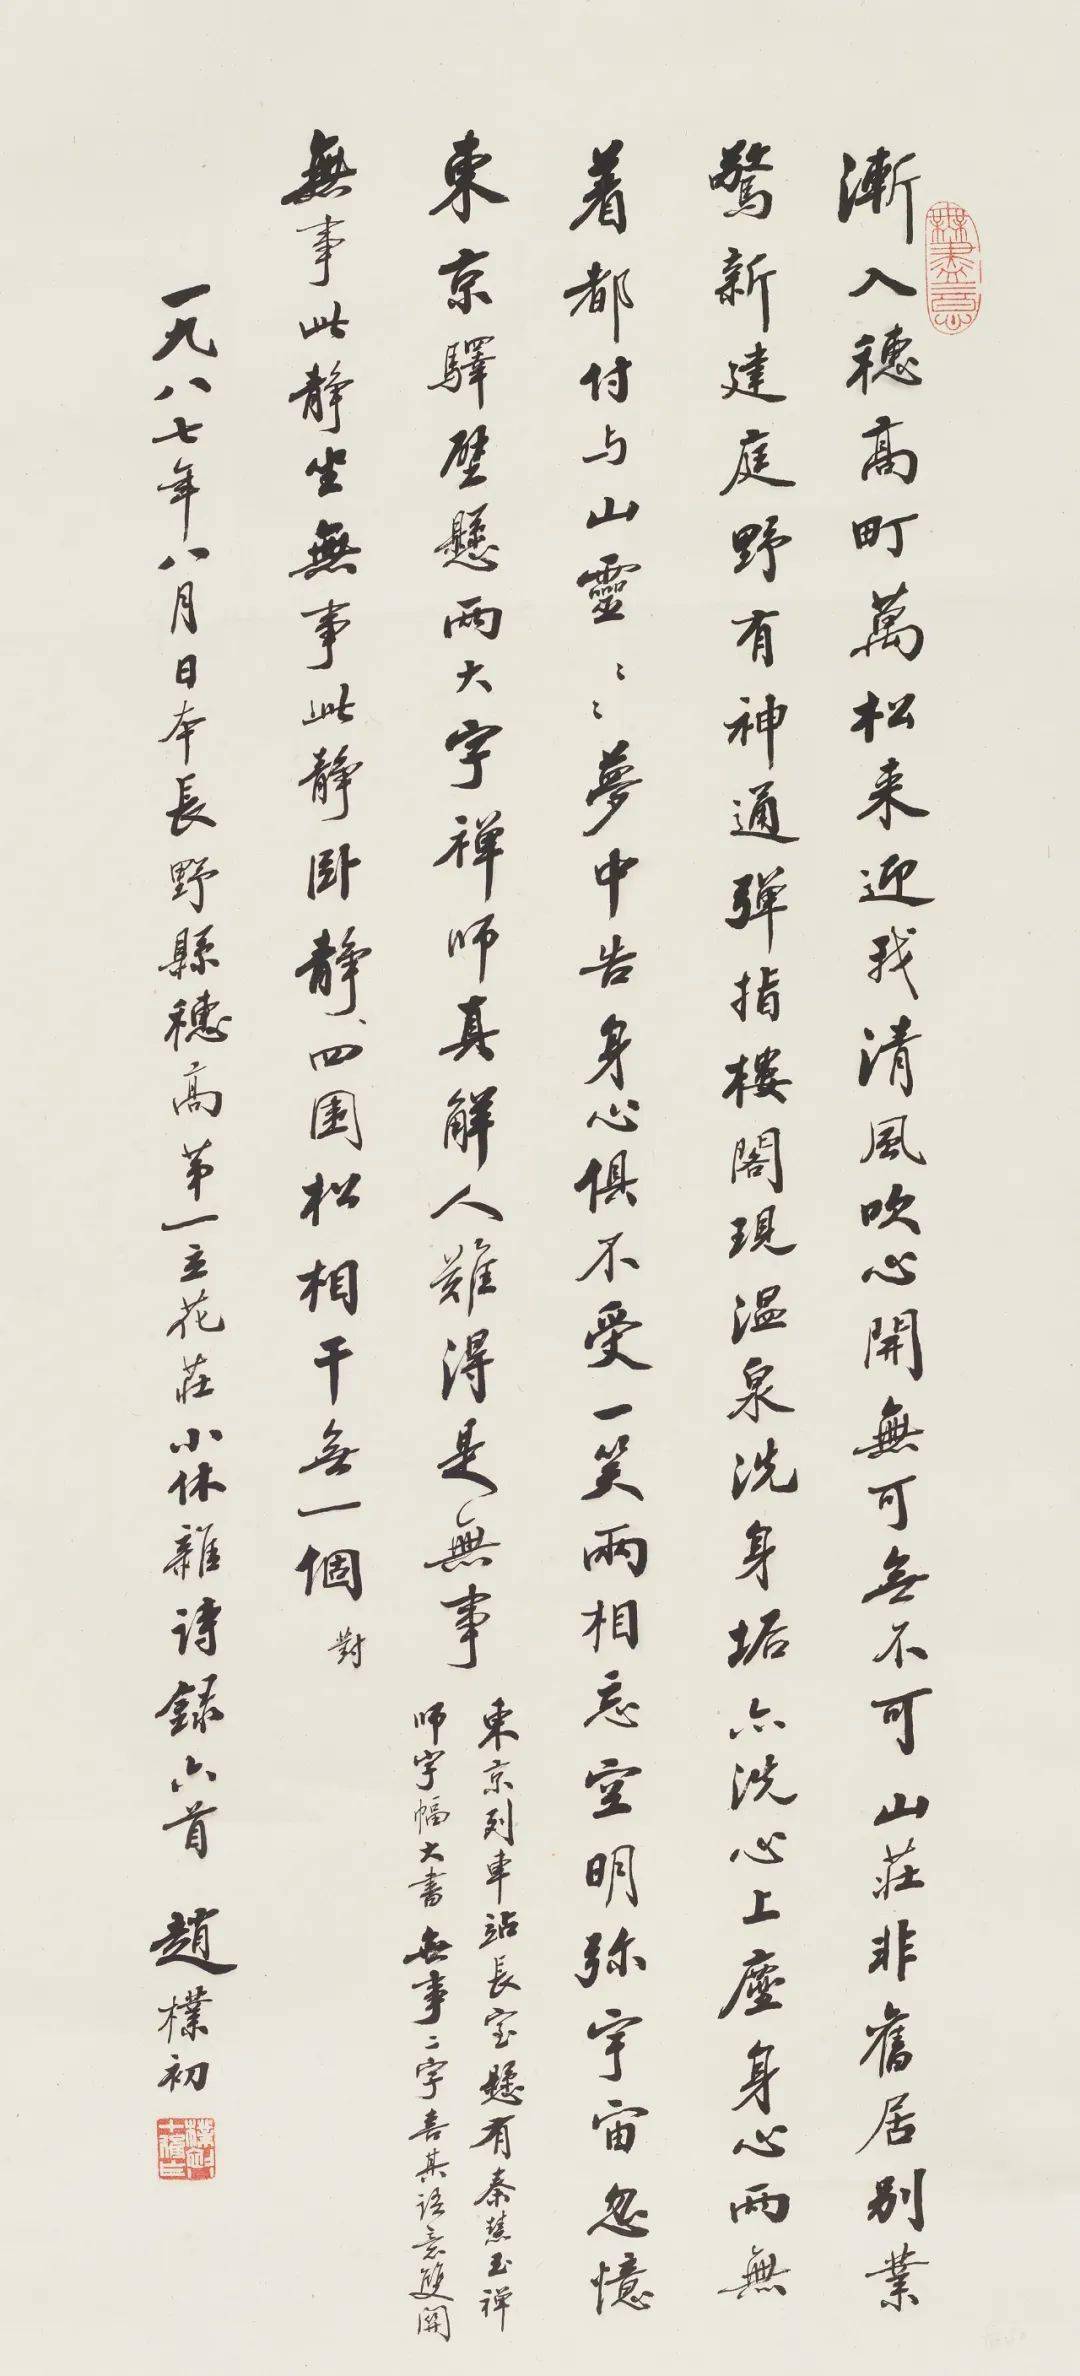 無盡意
漸入穗高町萬松来迎我清風吹心開無可無不可山莊非舊居別業
驚新建庭野有神通彈指樓閣現温泉洗身垢亦洗心上塵身心兩無
着都付与山靈〻〻夢中告身心俱不受一笑兩相忘空明弥宇宙忽憶
東京驛壁懸兩大字禅师真解人難得是無事
東京列車站長室懸有秦慧玉禅
师字幅大書無事二字喜其语意雙関
無事此静坐無事此静卧静、四圍松相干無一個
對
一九八七年八月日本長野縣穗高第一立花莊小休雜诗録六首 趙樸初